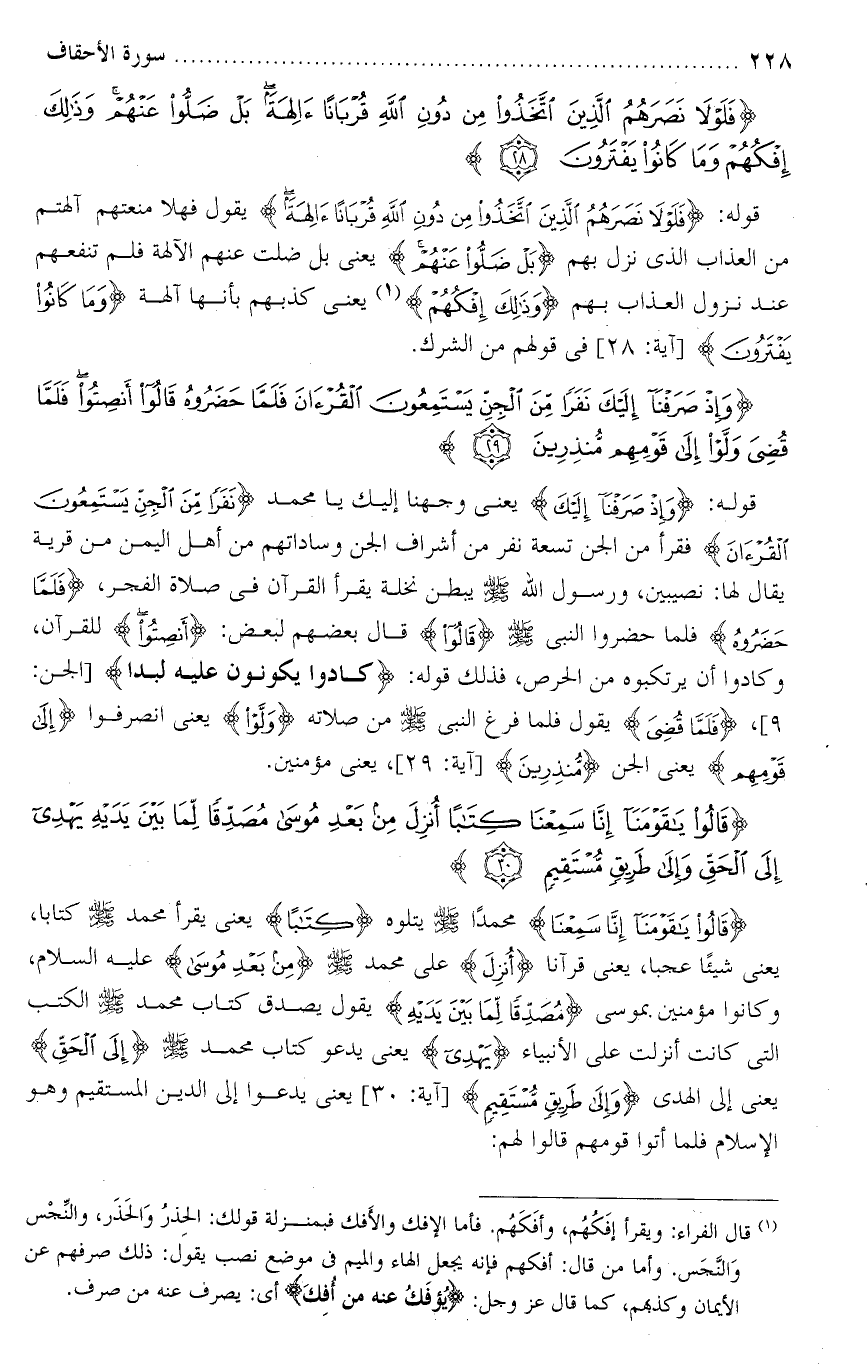 ٢٢٨ ........ سورة الأحقاف
﴿فَلَوْلَا نَصَرَهُمُ ٱلَّذِينَ ٱتَّخَذُوا۟ مِن دُونِ ٱللَّهِ قُرْبَانًا ءَالِهَةًۢ ۖ بَلْ ضَلُّوا۟ عَنْهُمْ ۚ وَذَٰلِكَ
إِفْكُهُمْ وَمَا كَانُوا۟ يَفْتَرُونَ ٢٨﴾
قوله: ﴿فَلَوْلَا نَصَرَهُمُ ٱلَّذِينَ ٱتَّخَذُوا۟ مِن دُونِ ٱللَّهِ قُرْبَانًا ءَالِهَةًۢ ۖ﴾ يقول فهلا منعتهم آلهتم
من العذاب الذى نزل بهم ﴿بَلْ ضَلُّوا۟ عَنْهُمْ ۚ﴾ يعنى بل ضلت عنهم الآلهة فلم تنفعهم
عند نزول العذاب بهم ﴿وَذَٰلِكَ إِفْكُهُمْ﴾(١) يعنى كذبهم بأنها آلهة ﴿وَمَا كَانُوا۟
يَفْتَرُونَ﴾ [آية: ٢٨] فى قولهم من الشرك.
﴿وَإِذْ صَرَفْنَآ إِلَيْكَ نَفَرًا مِّنَ ٱلْجِنِّ يَسْتَمِعُونَ ٱلْقُرْءَانَ فَلَمَّا حَضَرُوهُ قَالُوٓا۟ أَنصِتُوا۟ ۖ فَلَمَّا
قُضِىَ وَلَّوْا۟ إِلَىٰ قَوْمِهِم مُّنذِرِينَ ٢٩﴾
قوله: ﴿وَإِذْ صَرَفْنَآ إِلَيْكَ﴾ يعنى وجهنا إليك يا محمد ﴿نَفَرًا مِّنَ ٱلْجِنِّ يَسْتَمِعُونَ
ٱلْقُرْءَانَ﴾ فقرأ من الجن تسعة نفر من أشراف الجن وساداتهم من أهل اليمن من قرية
يقال لها: نصيبين، ورسول الله ﷺ يبطن نخلة يقرأ القرآن فى صلاة الفجر، ﴿فَلَمَّا
حَضَرُوهُ﴾ فلما حضروا النبى ﷺ ﴿قَالُوٓا۟﴾ قال بعضهم لبعض: ﴿أَنصِتُوا۟ ۖ﴾ للقرآن،
وكادوا أن يرتكبوه من الحرص، فذلك قوله: ﴿كادوا يكونون عليه لبدا﴾ [الجن:
٩]، ﴿فَلَمَّا قُضِىَ﴾ يقول فلما فرغ النبى ﷺ من صلاته ﴿وَلَّوْا۟﴾ يعنى انصرفوا ﴿إِلَىٰ
قَوْمِهِم﴾ يعنى الجن ﴿مُّنذِرِينَ﴾ [آية: ٢٩]، يعنى مؤمنين.
﴿قَالُوا۟ يَٰقَوْمَنَآ إِنَّا سَمِعْنَا كِتَٰبًا أُنزِلَ مِنۢ بَعْدِ مُوسَىٰ مُصَدِّقًا لِّمَا بَيْنَ يَدَيْهِ يَهْدِىٓ
إِلَى ٱلْحَقِّ وَإِلَىٰ طَرِيقٍ مُّسْتَقِيمٍ ٣٠﴾
﴿قَالُوا۟ يَٰقَوْمَنَآ إِنَّا سَمِعْنَا﴾ محمدًا ﷺ يتلوه ﴿كِتَٰبًا﴾ يعنى يقرأ محمد ﷺ كتابا،
يعنى شيئًا عجبا، يعنى قرآنا ﴿أُنزِلَ﴾ على محمد ﷺ ﴿مِنۢ بَعْدِ مُوسَىٰ﴾ عليه السلام،
وكانوا مؤمنين بموسى ﴿مُصَدِّقًا لِّمَا بَيْنَ يَدَيْهِ﴾ يقول يصدق كتاب محمد ﷺ الكتب
التى كانت أنزلت على الأنبياء ﴿يَهْدِىٓ﴾ يعنى يدعو كتاب محمد ﷺ ﴿إِلَى ٱلْحَقِّ﴾
يعنى إلى الهدى ﴿وَإِلَىٰ طَرِيقٍ مُّسْتَقِيمٍ﴾ [آية: ٣٠] يعنى يدعوا إلى الدين المستقيم وهو
الإسلام فلما أتوا قومهم قالوا لهم:
(١) قال الفراء: ويقرأ إفَكُهُم، وأفَكَهُم. فأما الإفك والأفك فبمنزلة قولك: الحِذرُ وَالحَذَر، والنِّجْس
وَالنَّجَس. وأما من قال: أفكهم فإنه يجعل الهاء والميم فى موضع نصب يقول: ذلك صرفهم عن
الأيمان وكذبهم، كما قال عز وجل: ﴿يُؤفَكُ عنه من أُفِكَ﴾ أى: يصرف عنه من صرف.